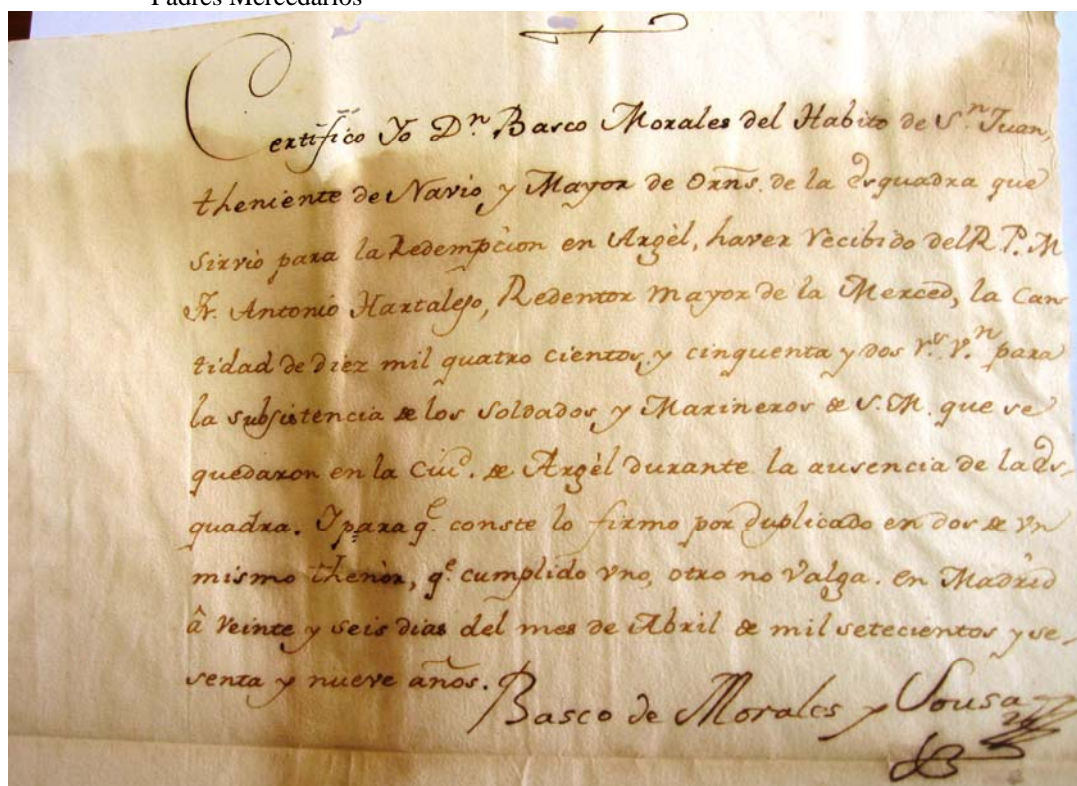 Padres Mercedarios
Certifico Yo Dn. Basco Morales del Habito de Sn. Juan,
theniente de Navio, y Mayor de Orñs. de la Esquadra que
sirviò para la Redempcion en Argèl, haver recibido del R. P. M.
Fr. Antonio Hartalejo, Redentor Mayor de la Merced, la Can-
tidad de diez mil quatro cientos, y cinquenta y dos rs. vn. para
la subsistencia de los Soldados y Marineros de S. M. que se
quedaron en la Ciud. de Argèl durante la ausencia de la Es-
quadra. Y para qe. conste lo firmo por duplicado en dos de vn
mismo thenòr, qe. cumplido vno, otro no valga. en Madrid
â veinte y seis dias del mes de Abril de mil setecientos y se-
senta y nueve años.
Basco de Morales y Sousa